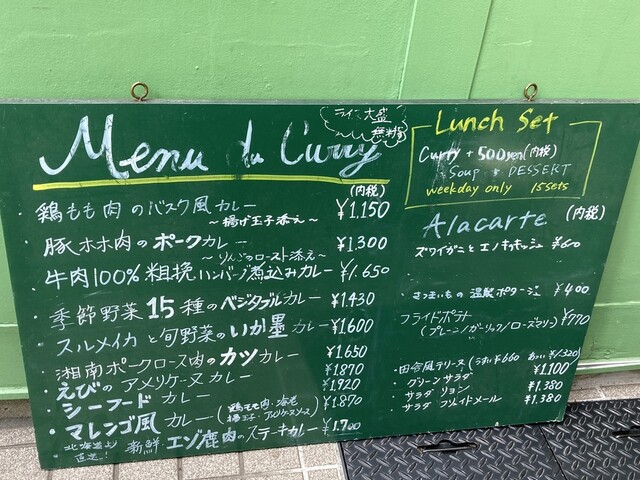 Menu du Curry
ライス大盛
無料
(内税)
鶏もも肉のバスク風カレー ¥1,150
～揚げ玉子添え～
豚ホホ肉のポークカレー ¥1,300
～りんごのロースト添え～
牛肉100%粗挽ハンバーグ煮込みカレー ¥1,650
・季節野菜15種のベジタブルカレー ¥1,430
・スルメイカと旬野菜のいか墨カレー ¥1600
・湘南ポークロース肉のカツカレー ¥1650
・えびのアメリケーヌカレー ¥1870
・シーフードカレー ¥1920
・マレンゴ風カレー(鶏もも肉・海老 ¥1,870
揚玉子・アメリケーヌソース)
北海道より
直送! 新鮮エゾ鹿肉のステーキカレー ¥1,700
Lunch Set
Curry + 500yen(内税)
Soup & DESSERT
weekday only 15sets
Alacarte (内税)
ズワイガニとエノキ ¥600
・さつまいもの温製ポタージュ ¥400
フライドポテト ¥770
(プレーン/ガーリック/ローズマリー)
・田舎風テリーヌ(うすい¥660 あつい¥1320)
・グリーンサラダ ¥1,100
・サラダリヨン ¥1,380
・サラダフリュイドメール ¥1,380